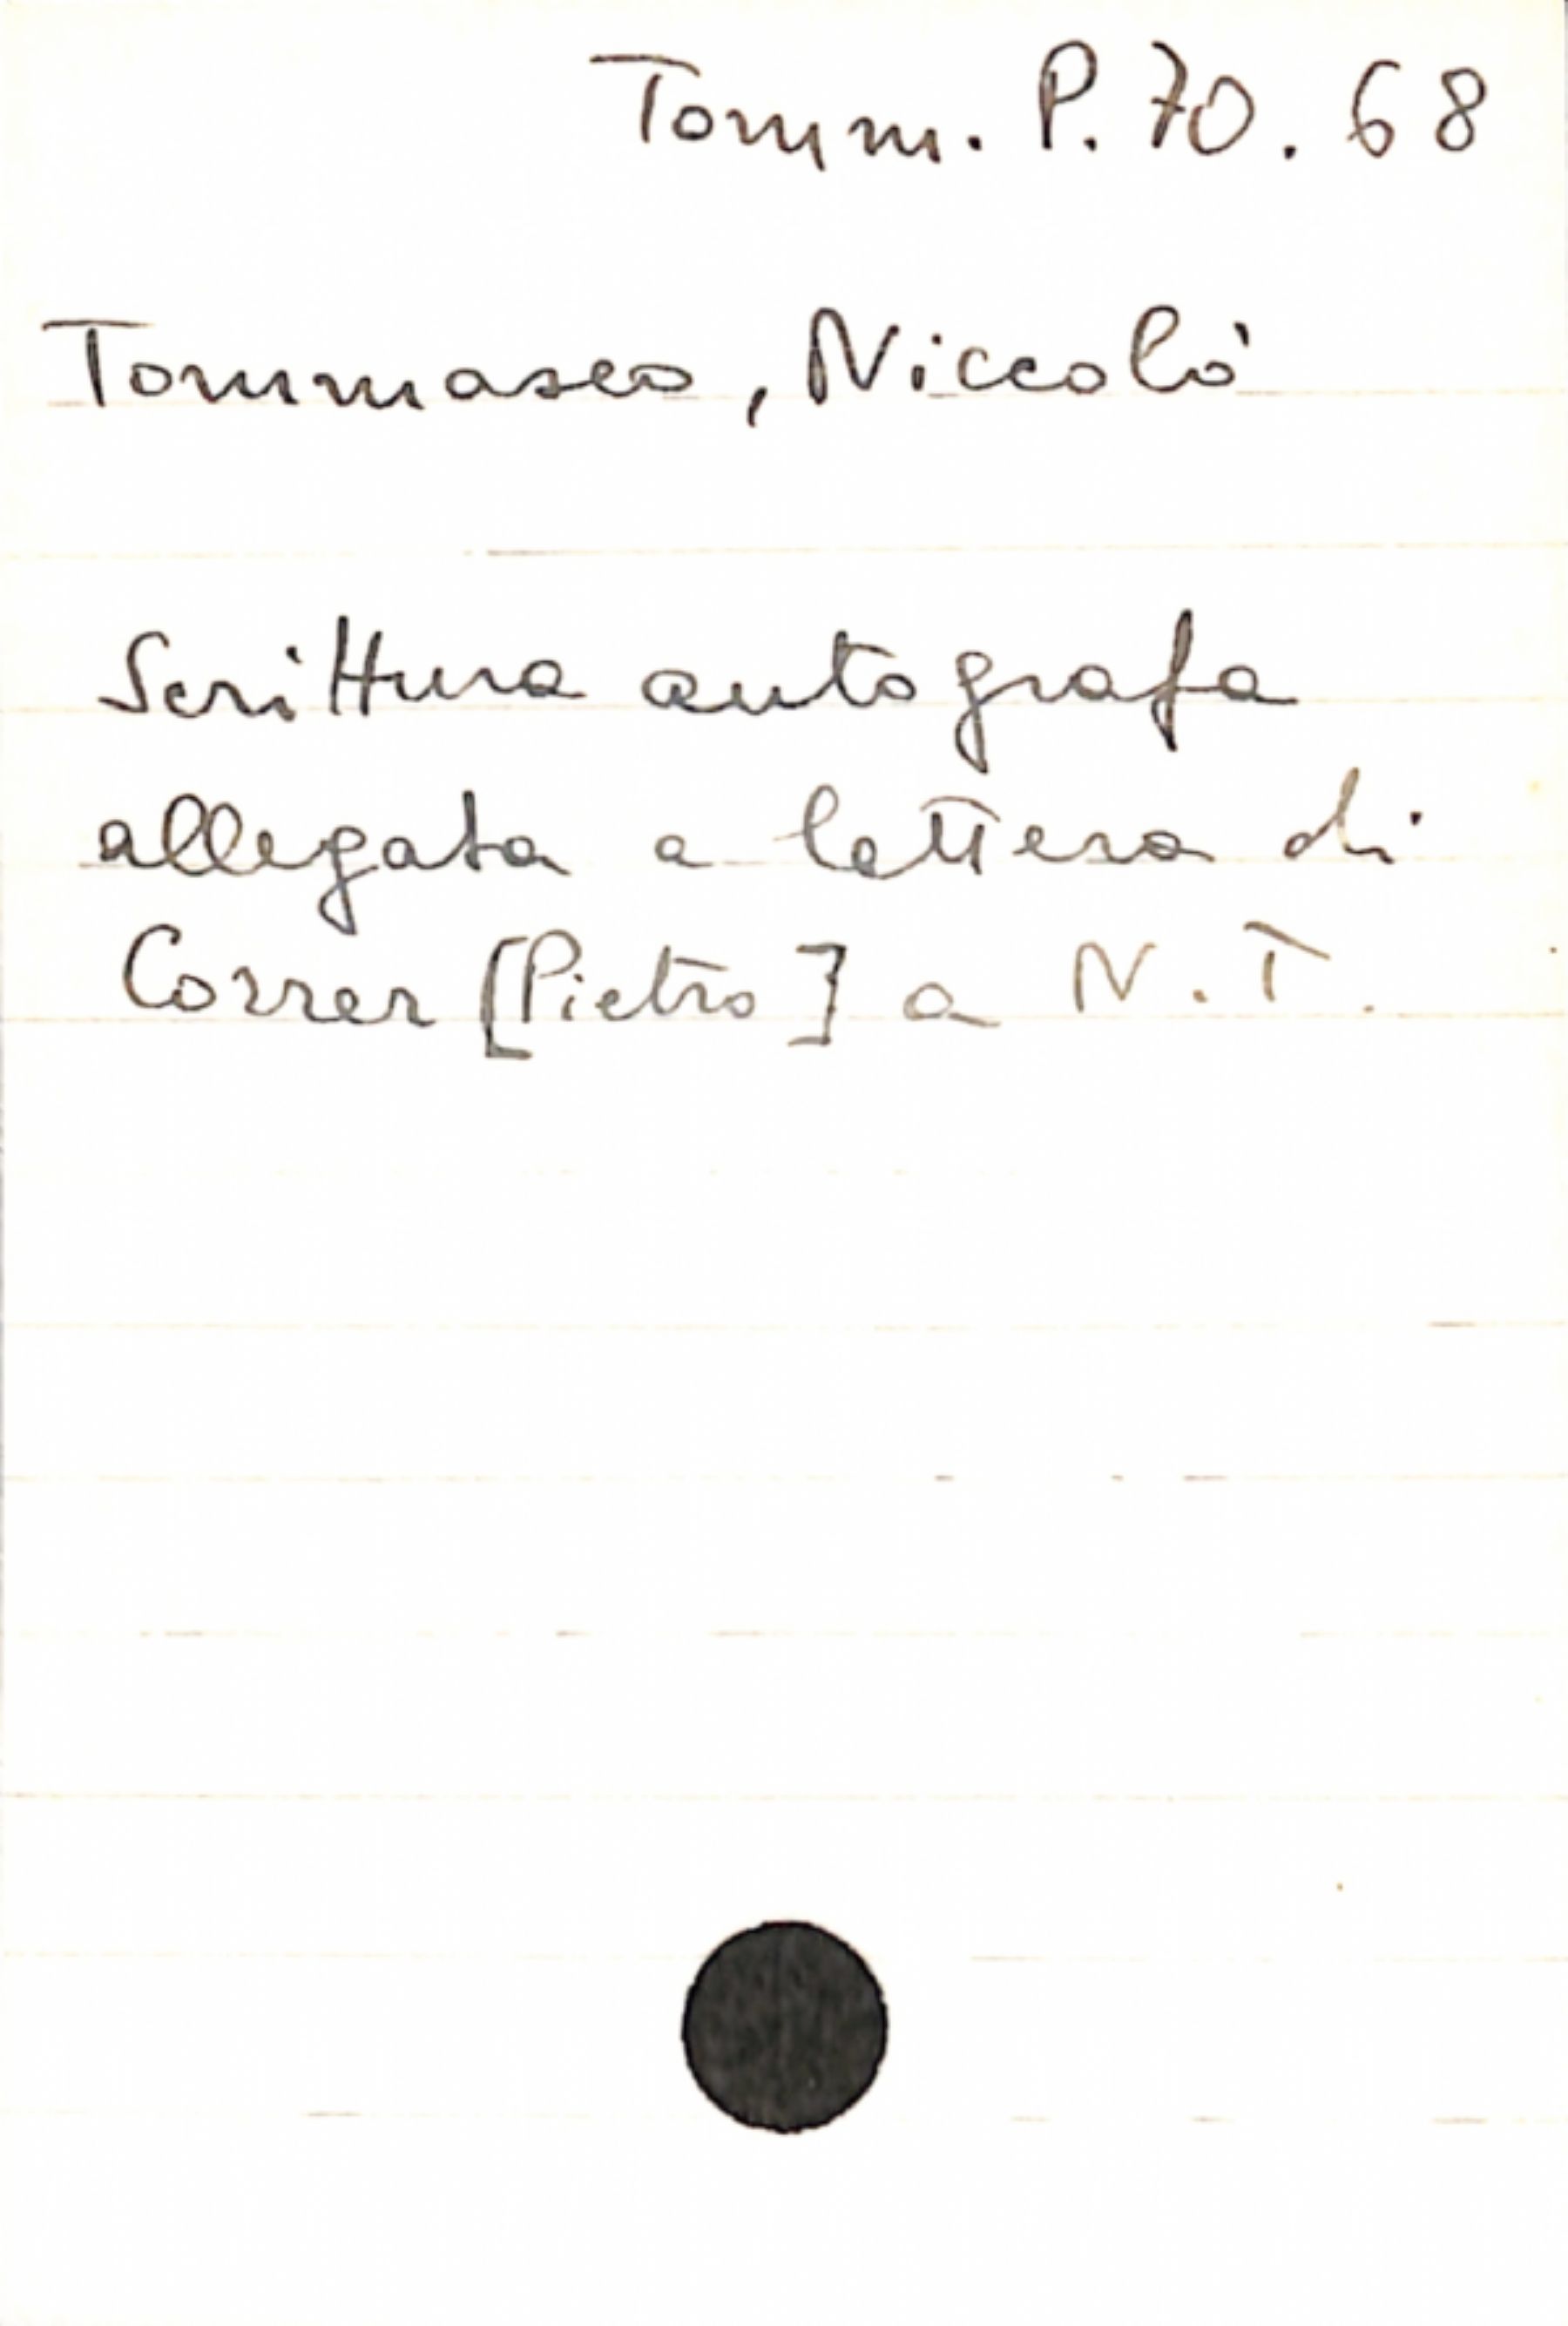 Tomm. P. 70. 68
Tommaseo, Niccolò
Scrittura autografa
allegata a lettera di
Correr [Pietro] a N. T.